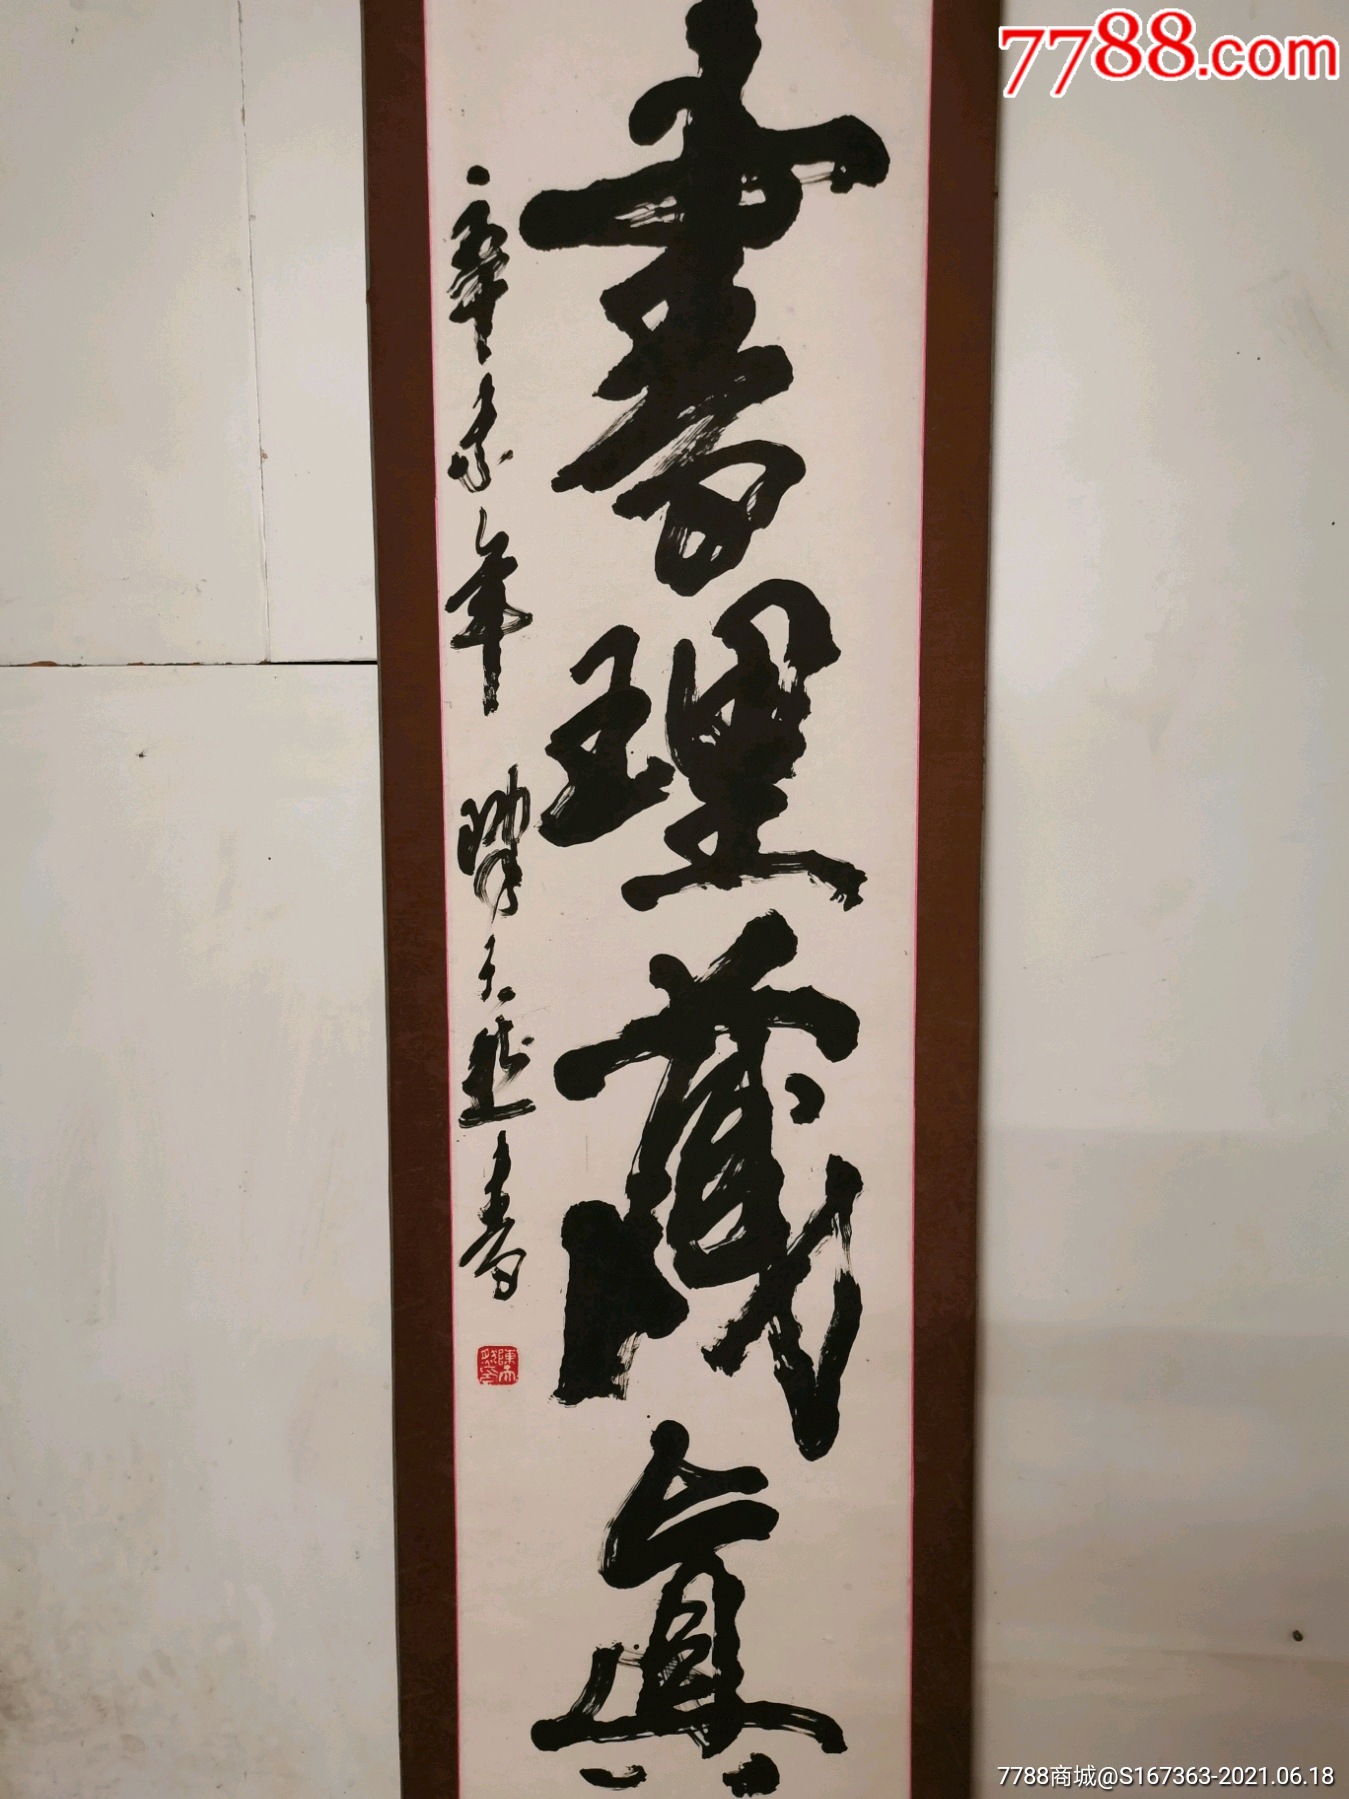 7788.com
書理藏真
辛未年 陳天然書
陳天然印
7788商城@S167363-2021.06.18